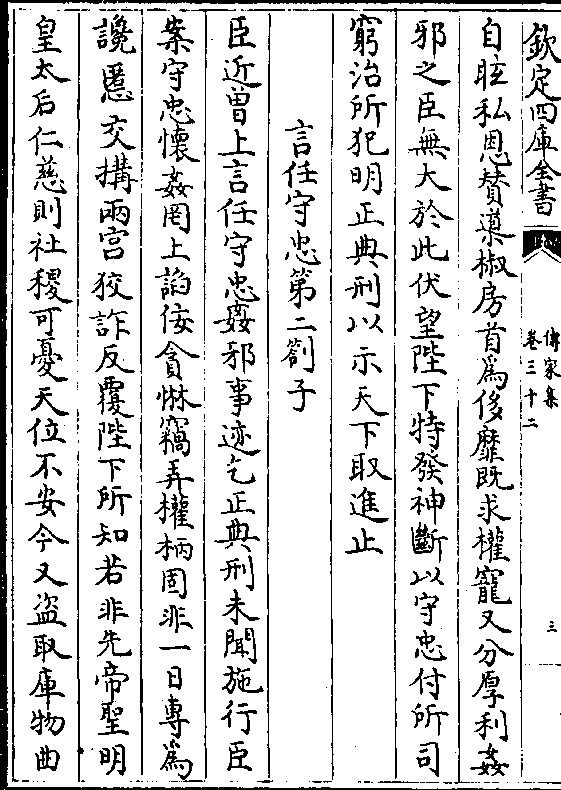 欽定四庫全書
傳家集
卷三十二
三
自眩私恩賛導椒房首爲侈靡既求權寵又分厚利姦
邪之臣無大於此伏望陛下特發神斷以守忠付所司
窮治所犯明正典刑以示天下取進止
言任守忠第二劄子
臣近曾上言任守忠姦邪事迹乞正典刑未聞施行臣
案守忠懷姦罔上諂佞貪惏竊弄權柄固非一日專爲
讒慝交搆兩宮狡詐反覆陛下所知若非先帝聖明
皇太后仁慈則社稷可憂天位不安今又盜取庫物曲